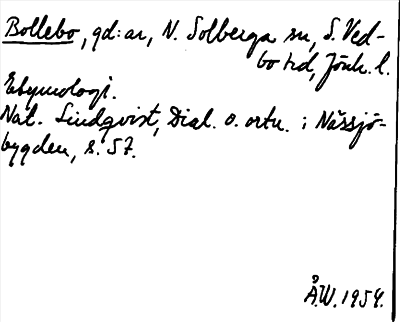 Bollebo, gd:ar, N. Solberga sn, S. Ved-
bo hd, Jönk. l.
Etymologi.
Nat. Lindqvist, Dial. o. ortn. i Nässjö-
bygden, s. 57.
Å.W. 1954.